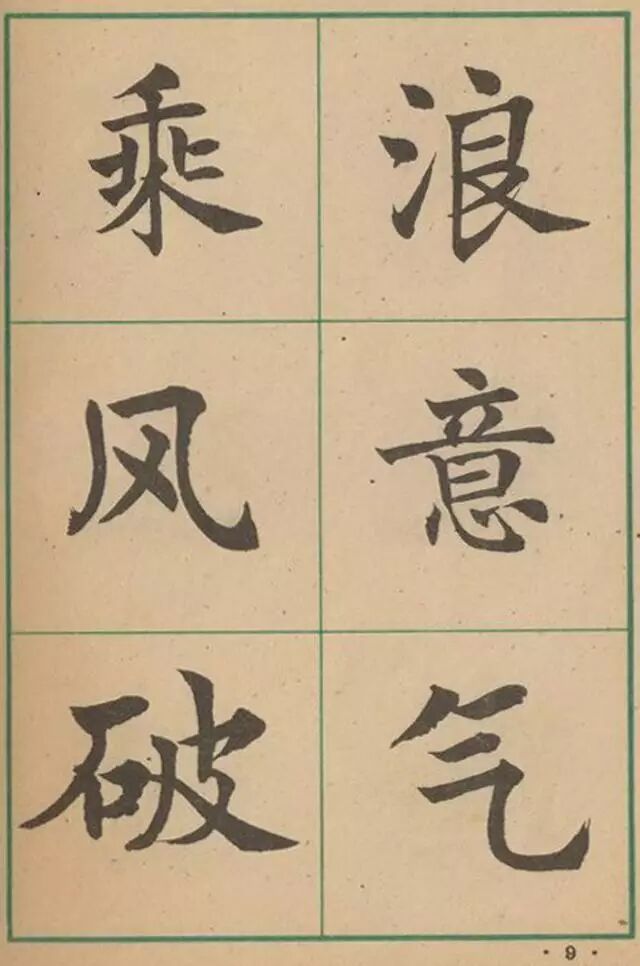 乘风破
浪意气
·9·